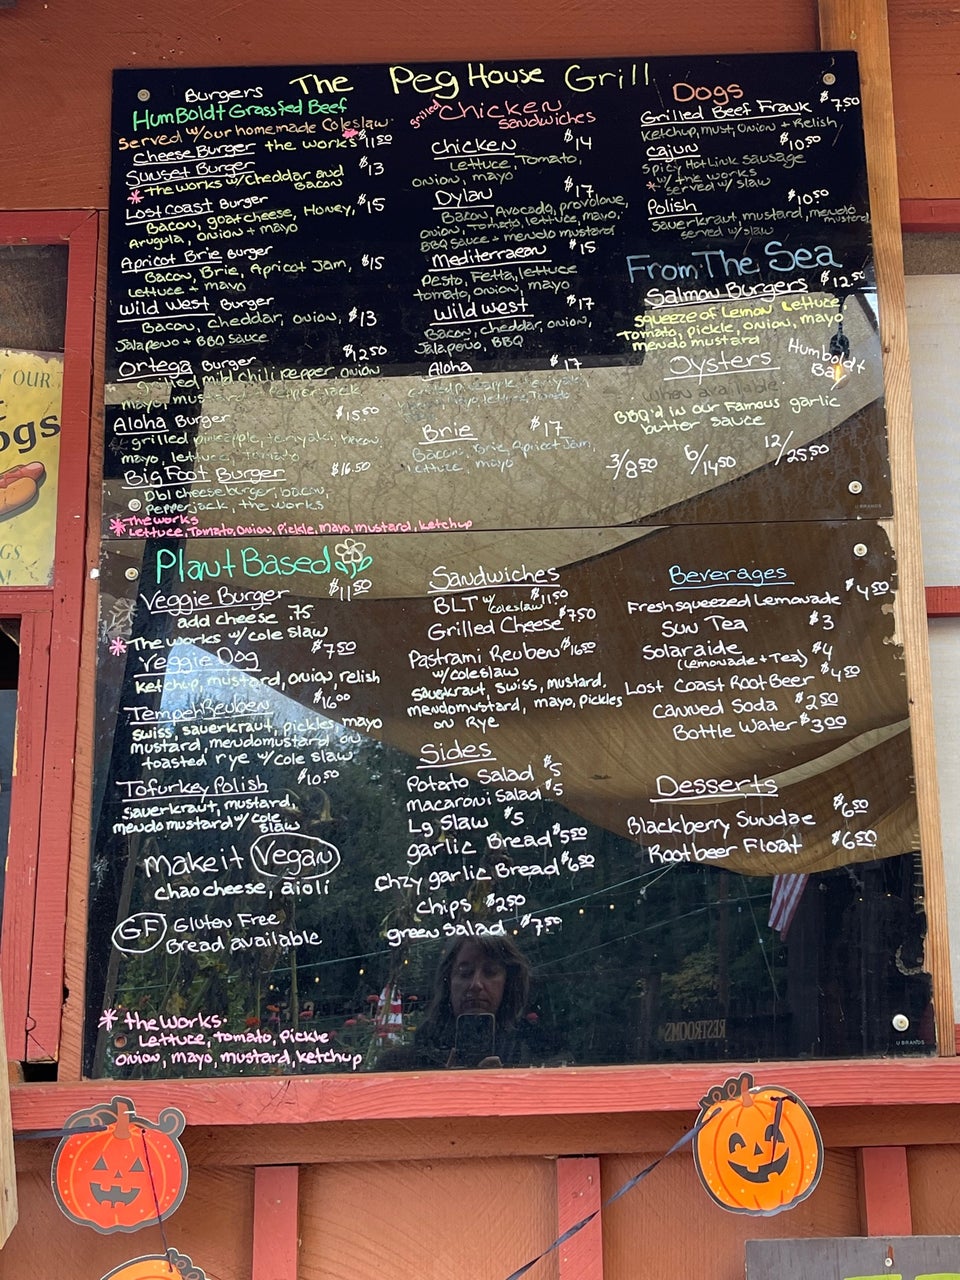 The Peg House Grill
Burgers
HumBoldt Grassfed Beef
Served w/our homemade Coleslaw
Cheese Burger the works* $11.50
Sunset Burger $13
*the works w/Cheddar and
Bacon
Lost Coast Burger $15
Bacon, goat cheese, Honey,
Arugula, onion + mayo
Apricot Brie Burger
Bacon, Brie, Apricot Jam, $15
Lettuce + mayo
Wild West Burger
Bacon, cheddar, onion, $13
Jalapeno + BBQ sauce
Ortega Burger $12.50
grilled mild chili pepper onion
mayo, mustard pepperjack
Aloha Burger $15.50
grilled pineapple, teriyaki, bacon,
mayo, lettuce, tomato
Big Foot Burger $16.50
Dbl cheeseburger, bacon,
pepperjack, the works
*The works
Lettuce, Tomato, Onion, Pickle, mayo, mustard, ketchup
grilled Chicken
Sandwiches
Chicken $14
Lettuce, Tomato,
onion, mayo
Dylan $17
Bacon, Avocado, provolone,
onion, Tomato, lettuce, mayo,
BBQ sauce + mendo mustard
Mediterraean $15
Pesto, Fetta, lettuce
tomato, onion, mayo
Wild West $17
Bacon, cheddar, onion,
Jalapeno, BBQ
Aloha $17
grilled pineapple, teriyaki,
mayo, lettuce, Tomato
Brie $17
Bacon, Brie, Apricot Jam,
lettuce, mayo
Dogs
Grilled Beef Frank $7.50
Ketchup, must, Onion + Relish
Cajun $10.50
Spicy Hot Link Sausage
*w/ the works
served w/ slaw
Polish $10.50
Sauerkraut, mustard, mendo mustard
served w/slaw
From The Sea
Salmon Burgers $12.50
squeeze of Lemon Lettuce
Tomato, pickle, onion, mayo
mendo mustard
Oysters Humboldt
Bay
when available
BBQ'd in our Famous garlic
butter sauce
3/8.50 6/14.50 12/25.50
U BRANDS
Plant Based
Veggie Burger $11.50
add cheese .75
*The works w/ cole slaw
Veggie Dog $7.50
Ketchup, mustard, onion, relish
Tempeh Reuben $16.00
Swiss, sauerkraut, pickles, mayo
mustard, mendomustard on
toasted rye w/cole slaw
Tofurkey Polish $10.50
Sauerkraut, mustard,
mendo mustard w/ cole
slaw
Make it Vegan
chao cheese, aioli
GF Gluten Free
Bread available
*the works.
Lettuce, tomato, pickle
onion, mayo, mustard, ketchup
Sandwiches
BLT w/ coleslaw $11.50
Grilled Cheese $7.50
Pastrami Reuben $16.50
w/coleslaw
Sauerkraut, Swiss, mustard,
mendomustard, mayo, pickles
on Rye
Sides
Potato Salad $5
macaroni Salad $5
Lg Slaw $5
garlic Bread $5.50
Chzy garlic Bread $6.50
Chips $2.50
green Salad $7.50
Beverages
Freshsqueezed Lemonade $4.50
Sun Tea $3
Solaraide $4
(Lemonade + Tea)
Lost Coast Root Beer $4.50
Canned Soda $2.50
Bottle Water $3.00
Desserts
Blackberry Sundae $6.50
Rootbeer Float $6.50
RESTROOMS
U BRANDS
OUR
ogs
GS